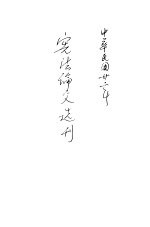 中華民國廿二年
憲法論文選刊